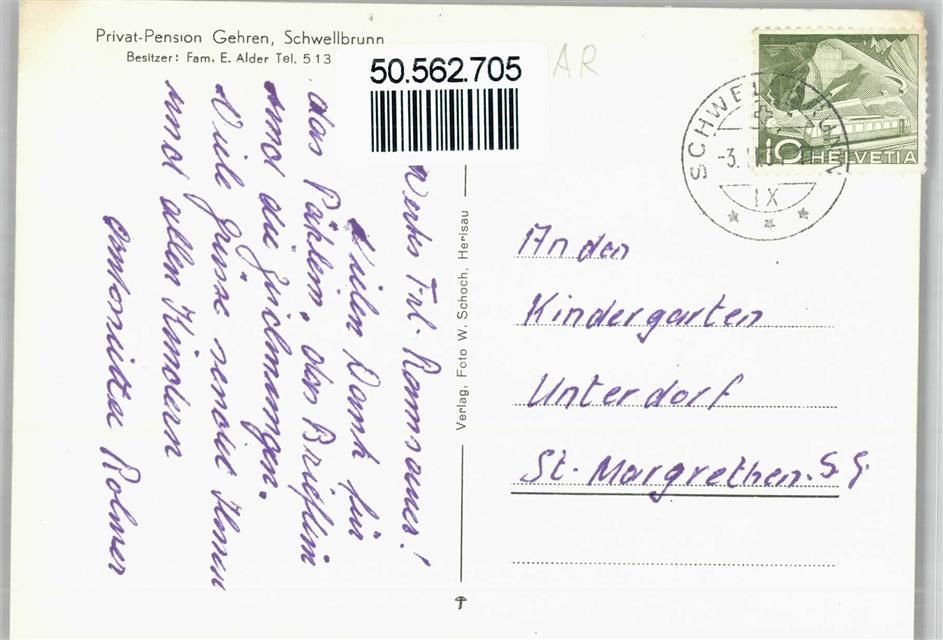 Privat-Pension Gehren, Schwellbrunn
Besitzer: Fam. E. Alder Tel. 513
50.562.705
AR
SCHWELLBRUNN
-3.
IX
10 HELVETIA
Wertes Frl.
Vielen Dank für
das Päklein, das Brieflein
und die Zeichnungen.
Viele Grüsse sendet Ihnen
und allen Kindern
Antonietta Rohner
Verlag, Foto W. Schoch, Herisau
An den
Kindergarten
Unterdorf
St. Margrethen. S. G.